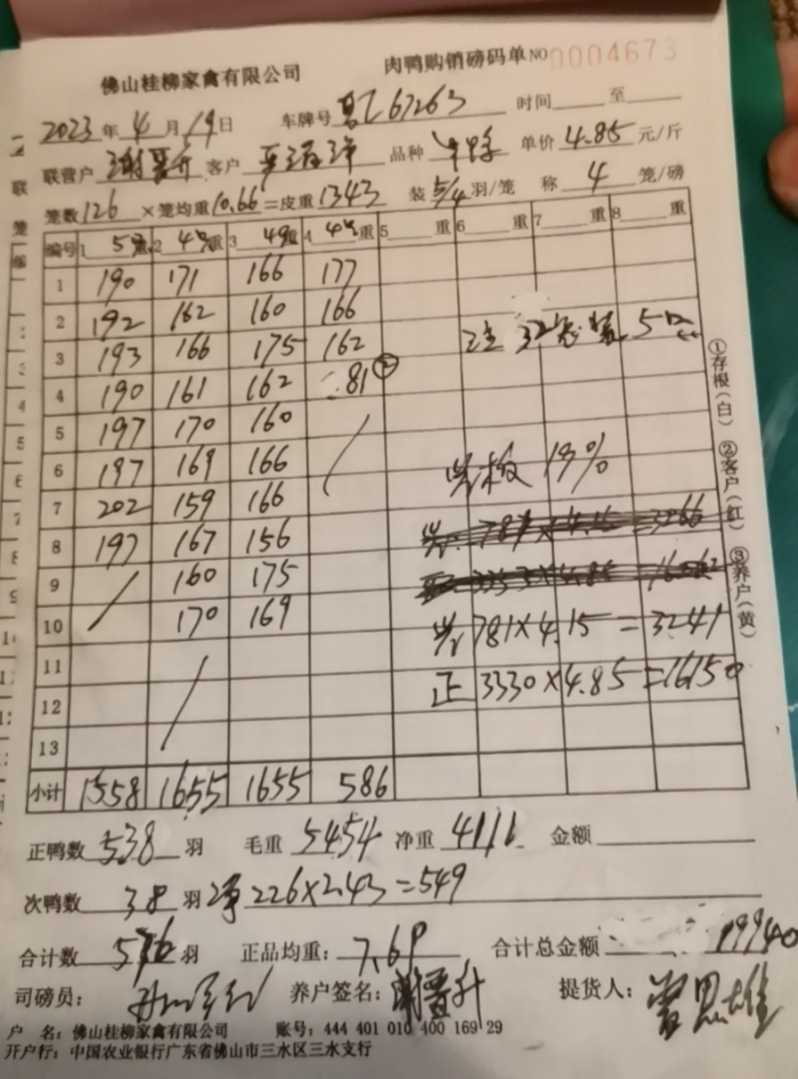 佛山桂柳家禽有限公司 肉鸭购销磅码单 NO 0004673
2023年4月19日 车牌号 67263 时间 至
联营户 客户 品种 单价 4.85 元/斤
笼数 126 ×笼均重 10.66 =皮重 1343 装 5/4 羽/笼 称 4 笼/磅
编号 1 5 重 2 4 重 3 4 重 4 4 重 5 重 6 重 7 重 8 重
1 190 171 166 177
2 192 162 160 166
3 193 166 175 162 注 32 装 5
4 190 161 162 81
5 197 170 160
6 197 169 166 19%
7 202 159 166
8 197 167 156
9 160 175
10 170 169 781×4.15=3241
11
12 正 3330×4.85=16150
13
小计 1558 1655 1655 586
正鸭数 538 羽 毛重 5454 净重 4111 金额
次鸭数 38 羽 净 226×2.43=549
合计数 576 羽 正品均重: 7.69 合计总金额 19940
司磅员: 养户签名: 谢晋升 提货人:
户 名: 佛山桂柳家禽有限公司 账号: 444 401 010 400 169 29
开户行: 中国农业银行广东省佛山市三水区三水支行
①存根(白) ②客户(红) ③养户(黄)